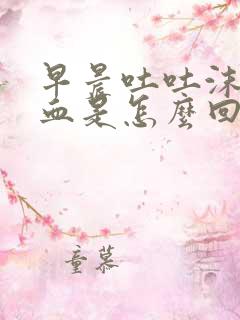 早晨吐吐沫
血是怎麼回
童慕